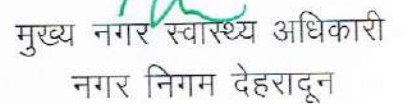 मुख्य नगर स्वास्थ्य अधिकारी
नगर निगम देहरादून